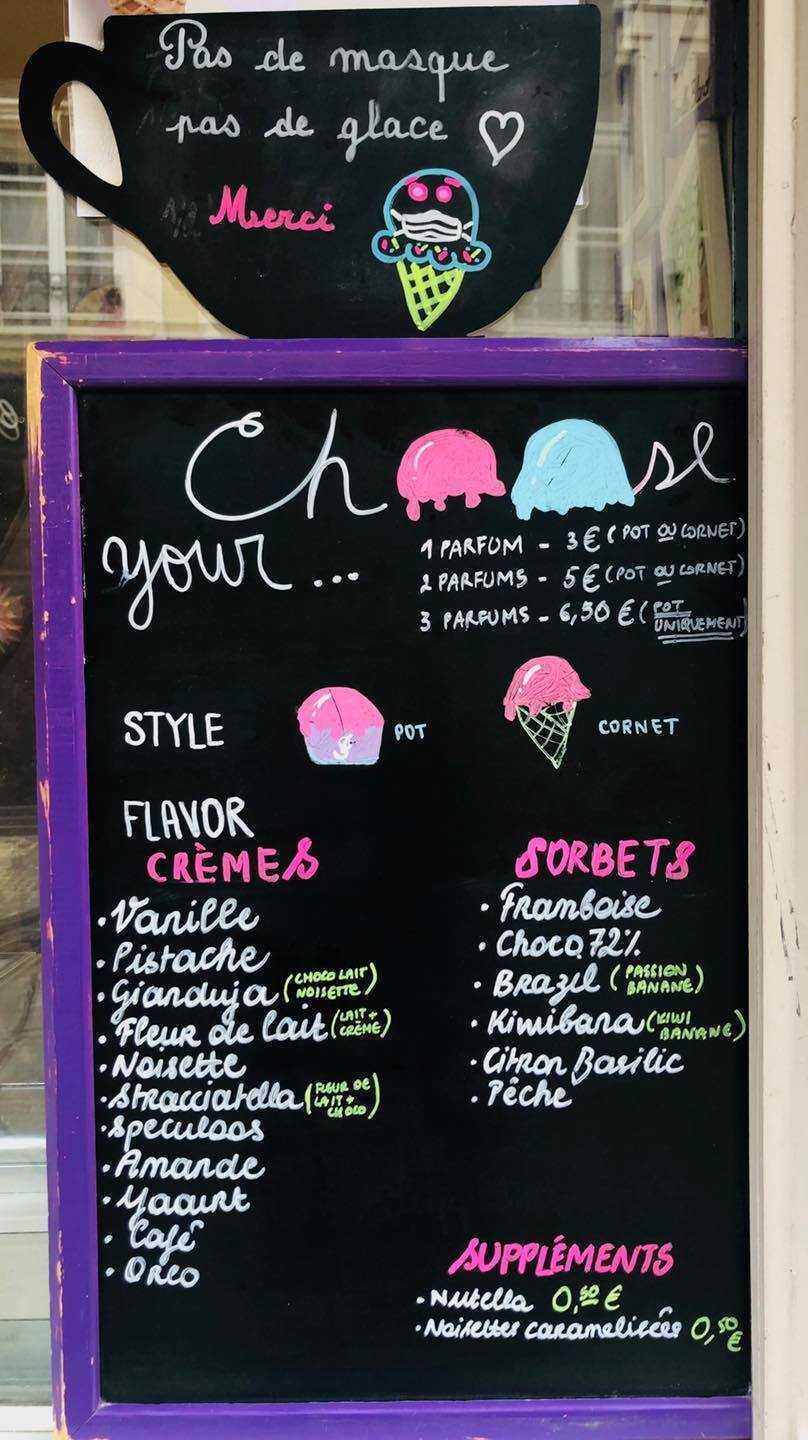 Pas de masque
pas de glace
Merci
Choose
your ...
1 PARFUM - 3€ (POT OU CORNET)
2 PARFUMS - 5€ (POT OU CORNET)
3 PARFUMS - 6,50 € (POT UNIQUEMENT)
STYLE
POT
CORNET
FLAVOR
CRÈMES
• Vanille
• Pistache
• Gianduja (CHOCO LAIT NOISETTE)
• Fleur de lait (LAIT + CRÈME)
• Noisette
• Stracciatella (FLEUR DE LAIT + CHOCO)
• Speculoos
• Amande
• Yaourt
• Café
• Oreo
SORBETS
• Framboise
• Choco 72%
• Brazil (PASSION BANANE)
• Kiwibana (KIWI BANANE)
• Citron Basilic
• Pêche
SUPPLÉMENTS
• Nutella 0,50 €
• Noisettes caramelisées 0,50 €